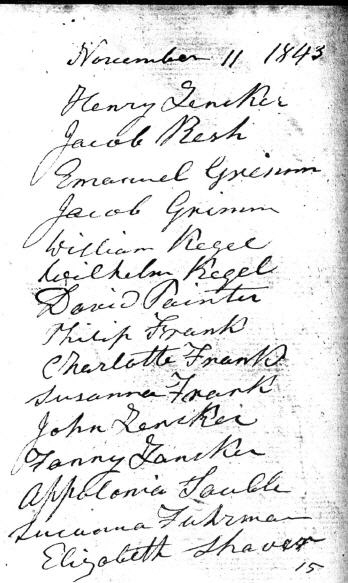 November 11 1843
Henry Zencker
Jacob Resh
Emanuel Grimm
Jacob Grimm
William Kegel
Wilhelm Kegel
David Painter
Philip Frank
Charlotte Frank
Susanna Frank
John Zencker
Fanny Zancker
Appolonia Sauble
Susanna Fuhrman
Elizabeth Shaver
15